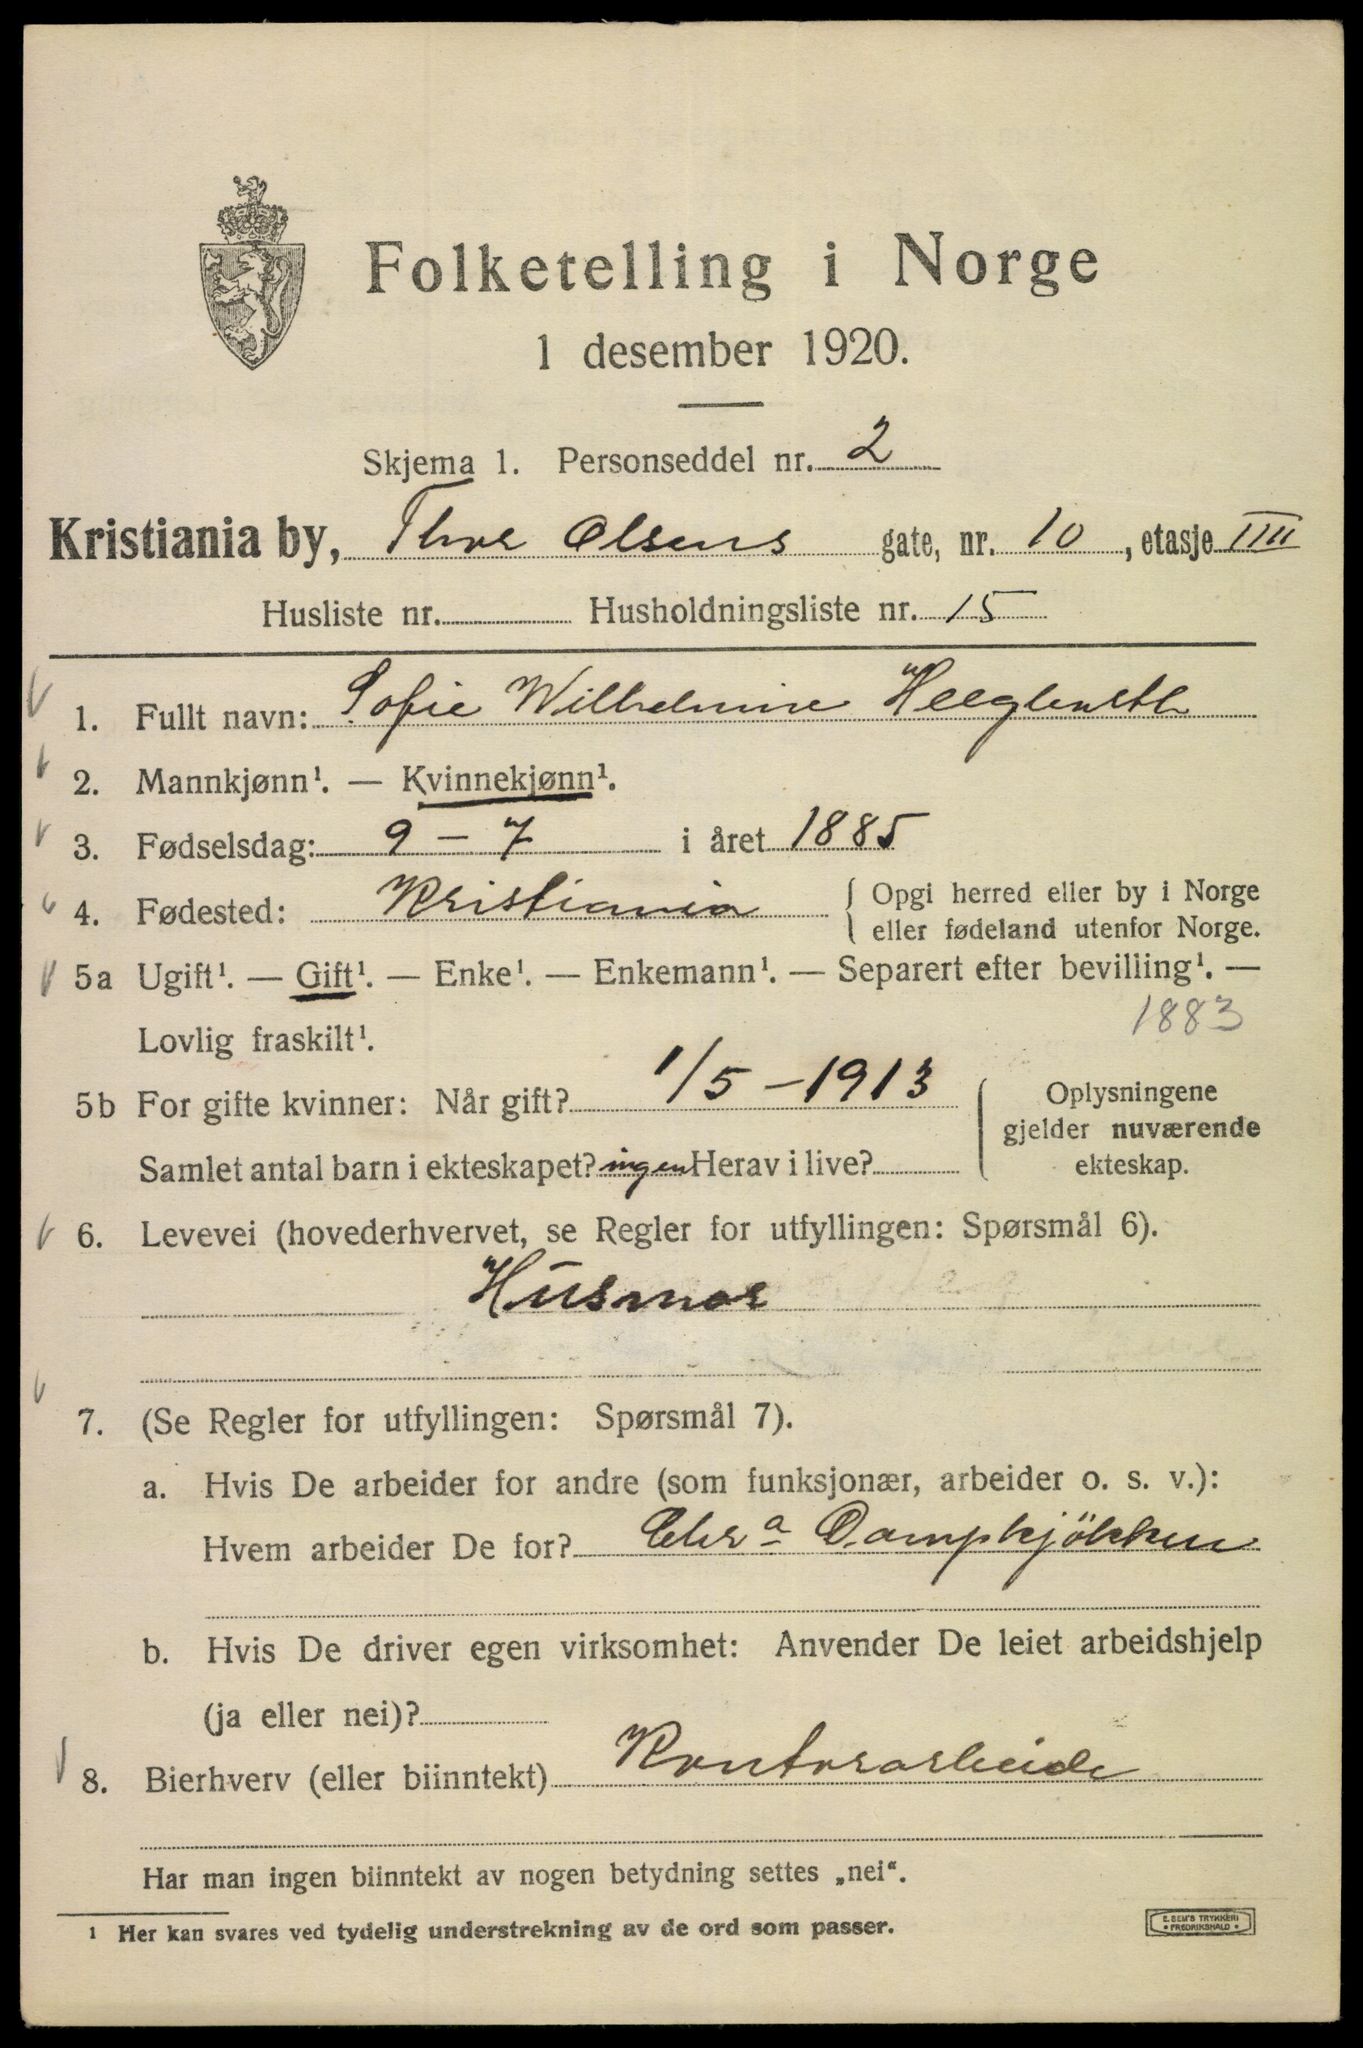 Folketelling i Norge
1 desember 1920.
Skjema 1. Personseddel nr. 2
Kristiania by, Thor Olsens gate, nr. 10, etasje IIII
Husliste nr. Husholdningsliste nr. 15
1. Fullt navn: Sofie Wilhelmine
2. Mannkjønn¹. — Kvinnekjønn¹.
3. Fødselsdag: 9 – 7 i året 1885
4. Fødested: Kristiania { Opgi herred eller by i Norge
eller fødeland utenfor Norge.
5a Ugift¹. — Gift¹. — Enke¹. — Enkemann¹. — Separert efter bevilling¹. —
1883
Lovlig fraskilt¹.
5b For gifte kvinner: Når gift? 1/5 – 1913
Samlet antal barn i ekteskapet? ingen Herav i live?
Oplysningene
gjelder nuværende
ekteskap.
6. Levevei (hovederhvervet, se Regler for utfyllingen: Spørsmål 6).
Husmor
7. (Se Regler for utfyllingen: Spørsmål 7).
a. Hvis De arbeider for andre (som funksjonær, arbeider o. s. v.):
Hvem arbeider De for? Chr a Dampkjökken
b. Hvis De driver egen virksomhet: Anvender De leiet arbeidshjelp
(ja eller nei)?
8. Bierhverv (eller biinntekt) Kontorarbeide
Har man ingen biinntekt av nogen betydning settes „nei“.
¹ Her kan svares ved tydelig understrekning av de ord som passer.
E. SEM'S TRYKKERI
• FREDRIKSHALD •